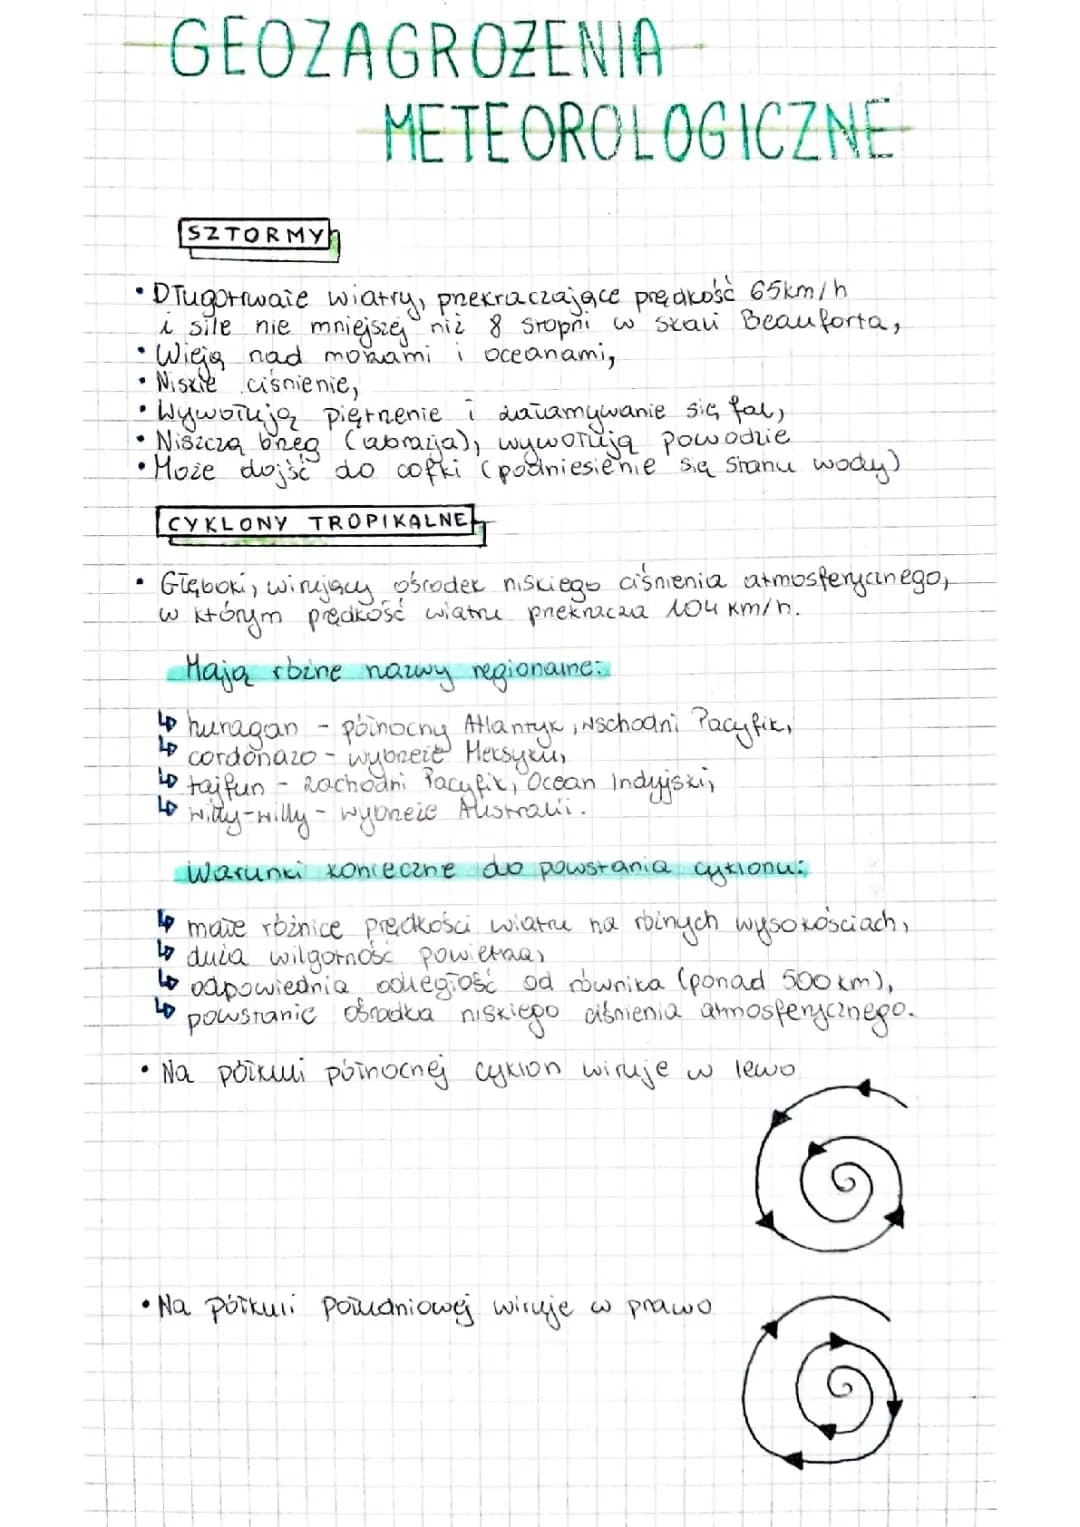 GEOZAGROŻENIA
METEOROLOGICZNE
SZTORMY
• Długotrwałe wiatry, przekraczające prędkość 65km/h
i sile nie mniejszej niż 8 stopni w skali Beauforta,
• Wieją nad morzami i oceanami,
• Niskie ciśnienie,
• Wywołują piętrzenie i załamywanie się fal,
• Niszczą brzeg (abrazja), wywołują powodzie
• Może dojść do cofki (podniesienie się stanu wody)
CYKLONY TROPIKALNE
• Głęboki, wirujący ośrodek niskiego ciśnienia atmosferycznego,
w którym prędkość wiatru przekracza 104 km/h.
Mają różne nazwy regionalne:
↳ huragan - północny Atlantyk, wschodni Pacyfik,
↳ cordonazo - wybrzeże Meksyku,
↳ tajfun - zachodni Pacyfik, Ocean Indyjski,
↳ willy-willy - wybrzeże Australii.
Warunki konieczne do powstania cyklonu:
↳ małe różnice prędkości wiatru na różnych wysokościach,
↳ duża wilgotność powietrza,
↳ odpowiednia odległość od równika (ponad 500 km),
↳ powstanie ośrodka niskiego ciśnienia atmosferycznego.
• Na półkuli północnej cyklon wiruje w lewo
• Na półkuli południowej wiruje w prawo